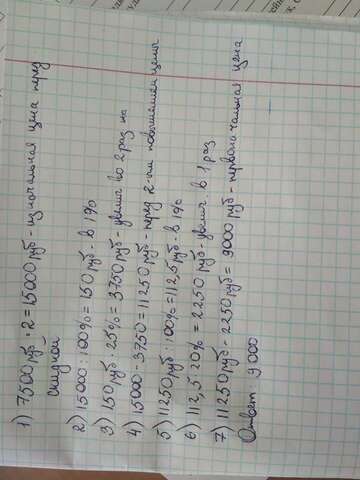 1) 7500 руб · 2 = 15000 руб - изначальная цена перед
скидкой
2) 15000 : 100% = 150 руб - в 1%
3) 150 руб · 25% = 3750 руб - увелич во 2 раз на
4) 15000 - 3750 = 11250 руб - перед 2-ым повышением цены
5) 11250 руб : 100% = 112,5 руб - в 1%
6) 112,5 · 20% = 2250 руб - увелич в 1 раз
7) 11250 руб - 2250 руб = 9000 руб - первоначальная цена
Ответ: 9000